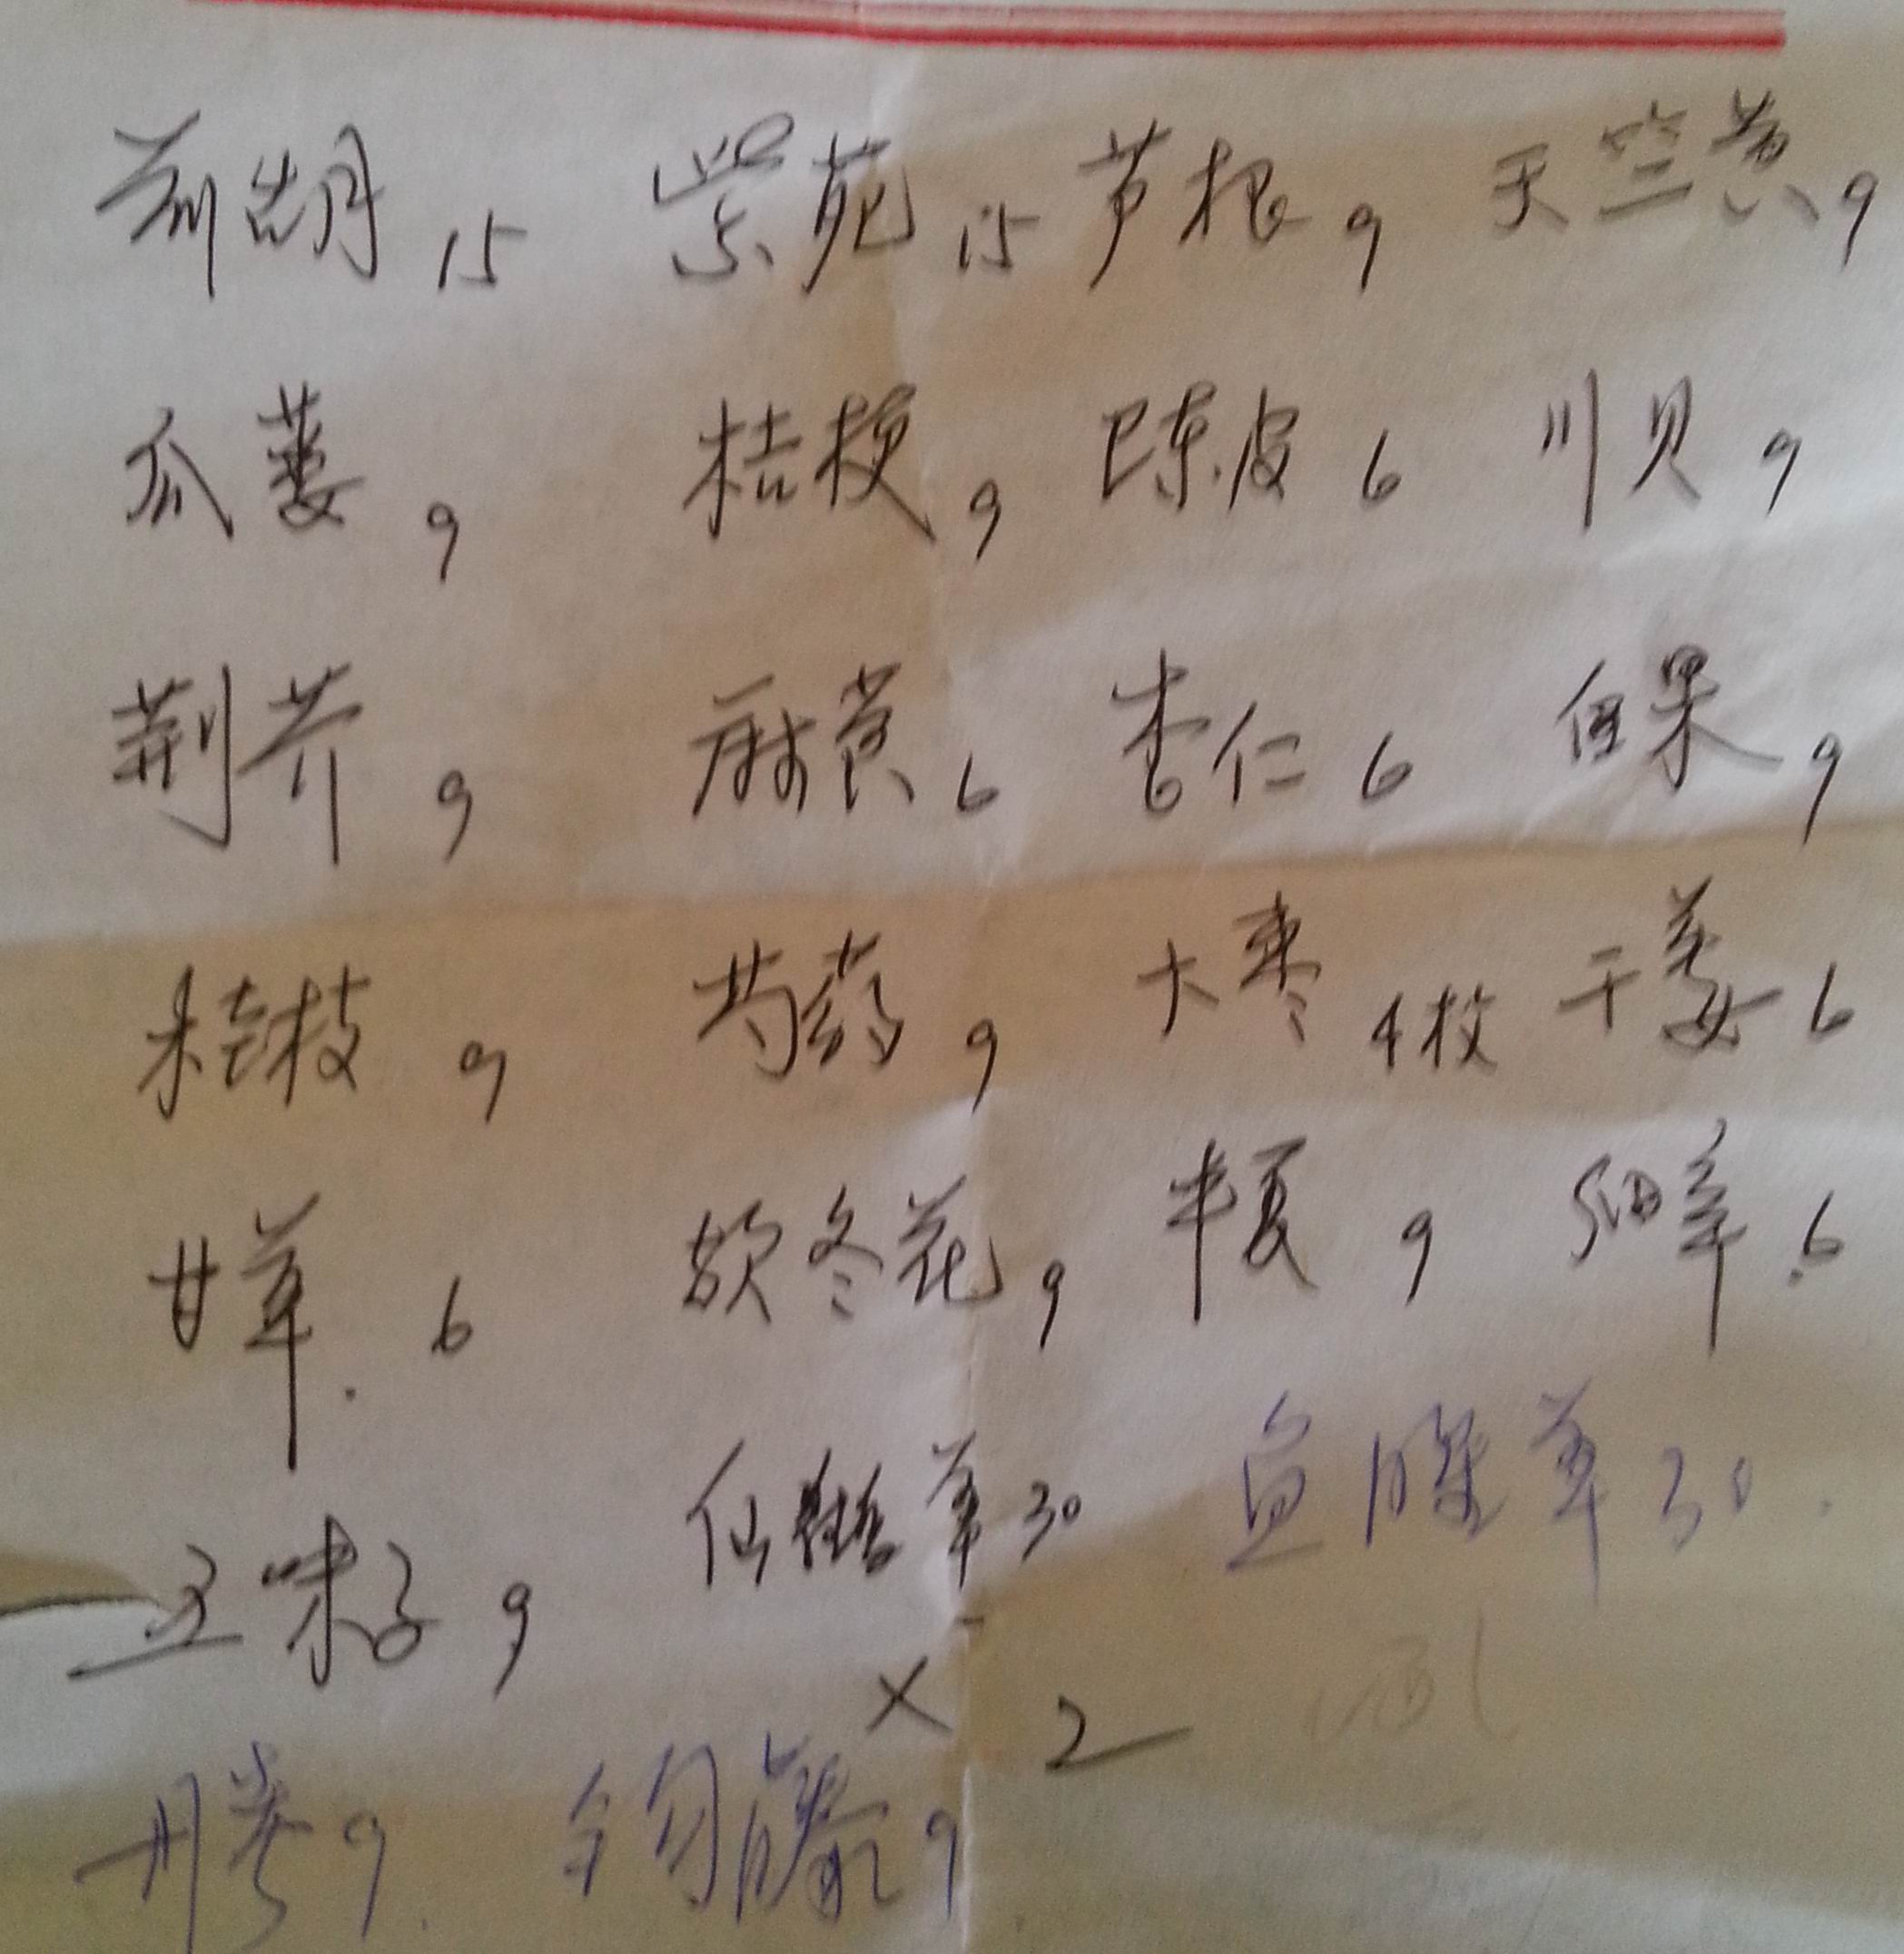 前胡 15 紫苑 15 芦根 9 天竺黄 9
瓜蒌 9 桔梗 9 陈皮 6 川贝 9
荆芥 9 麻黄 6 杏仁 6 白果 9
桂枝 9 芍药 9 大枣 4枚 干姜 6
甘草. 6 款冬花 9 半夏 9 细辛 .6
五味子 9 仙鹤草 30 鱼腥草 30.
× 2
丹参 9. 钩藤 9